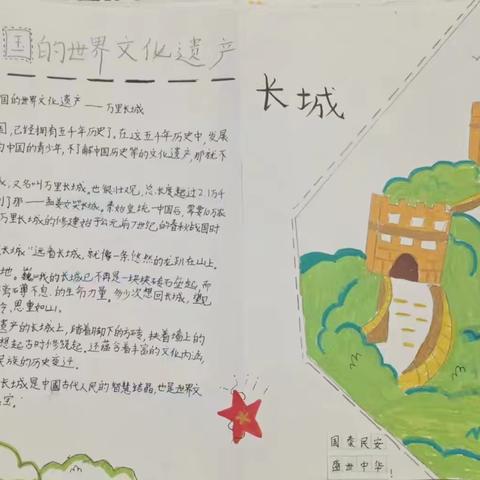 国的世界文化遗产
长城
国的世界文化遗产——万里长城
国,已经拥有五千年历史了。在这五千年历史中,发展
为中国的青少年,不了解中国历史等的文化遗产,那就不
,又名叫万里长城。也很壮观,总长度超过2.1万千
门那一孟姜女哭长城。秦始皇统一中国后,需要10万农
万里长城的修建始于公元前7世纪的春秋战国时
长城"远看长城,就像一条悠然的龙趴在山上。
地。巍峨的长城已不再是一块块砖石垒起,而
生生不息的生命力量。多少次想回长城,
今,思重如山。
遗产的长城上,踏着脚下的方砖,扶着墙上的
想起古时修筑起,还蕴含着丰富的文化内涵,
民族的历史变迁。
长城是中国古代人民的智慧结晶,也是世界文
宝。
国泰民安
盛世中华!